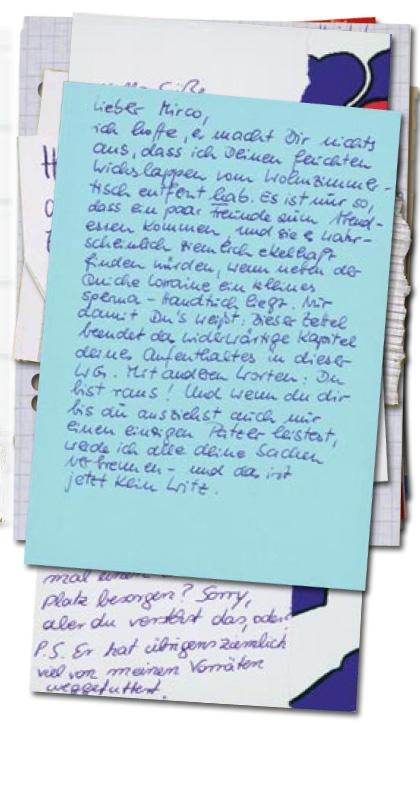 Lieber Mirco,
ich hoffe, es macht Dir nichts
aus, dass ich Deinen feuchten
Wichslappen vom Wohnzimmer-
tisch entfernt hab. Es ist nur so,
dass ein paar Freunde zum Abend-
essen kommen und sie es wahr-
scheinlich ziemlich ekelhaft
finden würden, wenn neben der
Quiche Lorraine ein kleines
Sperma-Handtuch liegt. Nur
damit Du's weißt: Dieser Zettel
beendet das widerwärtige Kapitel
deines Aufenthaltes in dieser
WG. Mit anderen Worten: Du
bist raus! Und wenn du dir
bis du ausziehst auch nur
einen einzigen Patzer leistest,
werde ich alle deine Sachen
verbrennen - und das ist
jetzt kein Witz.
mal einen
Platz besorgen? Sorry,
aber du verstehst das, oder?
P.S. Er hat übrigens ziemlich
viel von meinen Vorräten
weggefuttert.